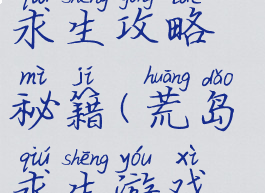 qiú shēng gōng lüè
求生攻略
mì jí huāng dǎo
秘籍(荒岛
qiú shēng yóu xì
求生游戏